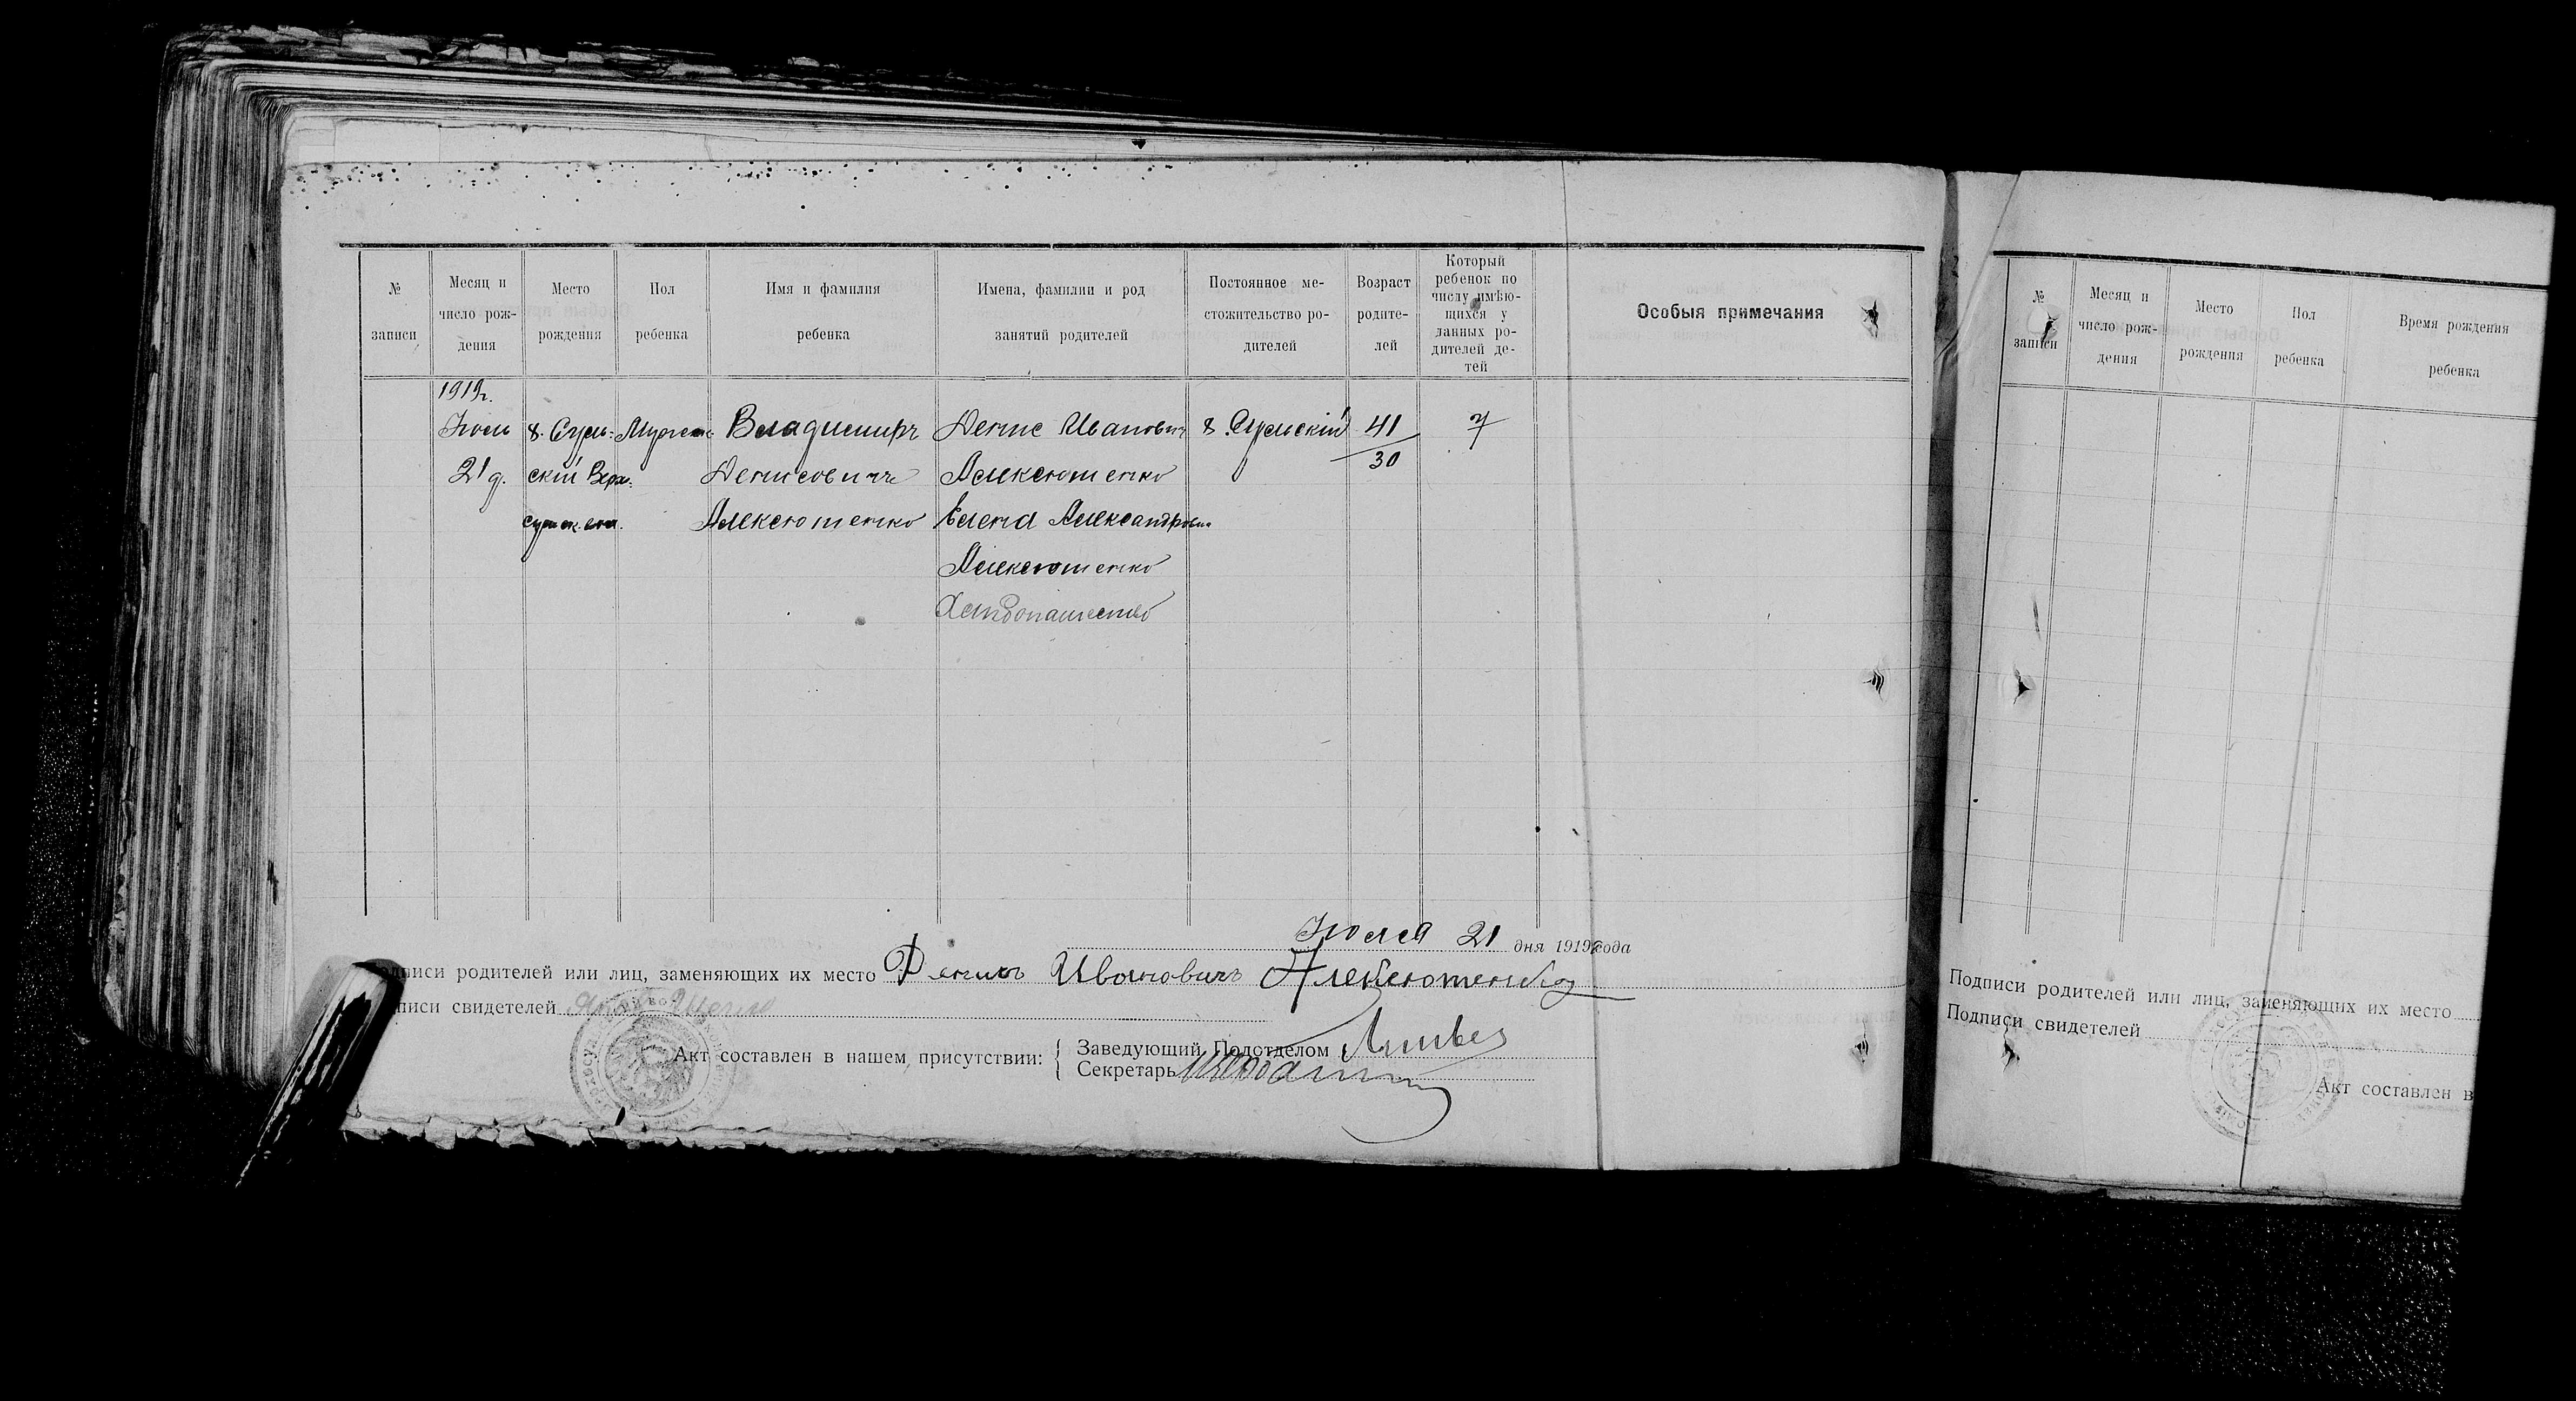 № записи
Месяц и число рождения
Место рождения
Пол ребенка
Имя и фамилия ребенка
Имена, фамилии и род занятий родителей
Постоянное местожительство родителей
Возраст родителей
Который ребенок по числу имѣющихся у данных родителей детей
Особыя примечания
1919г.
Июль
21 д.
х. Сум-
ский Верх-
сумск. вол.
Мужск.
Владимиръ
Денисовичъ
Алексютенко
Денис Иванович
Алексютенко
Елена Александровна
Алексютенко
Хлебопашество
х. Сумский
41
30
7
Июля 21 дня 1919 года
Подписи родителей или лиц, заменяющих их место Денисъ Ивановичъ Алексютенко
Подписи свидетелей
Акт составлен в нашем присутствии:
Заведующий Подотделом
Секретарь
№ записи
Месяц и число рождения
Место рождения
Пол ребенка
Время рождения ребенка
Подписи родителей или лиц, заменяющих их место
Подписи свидетелей
Акт составлен в